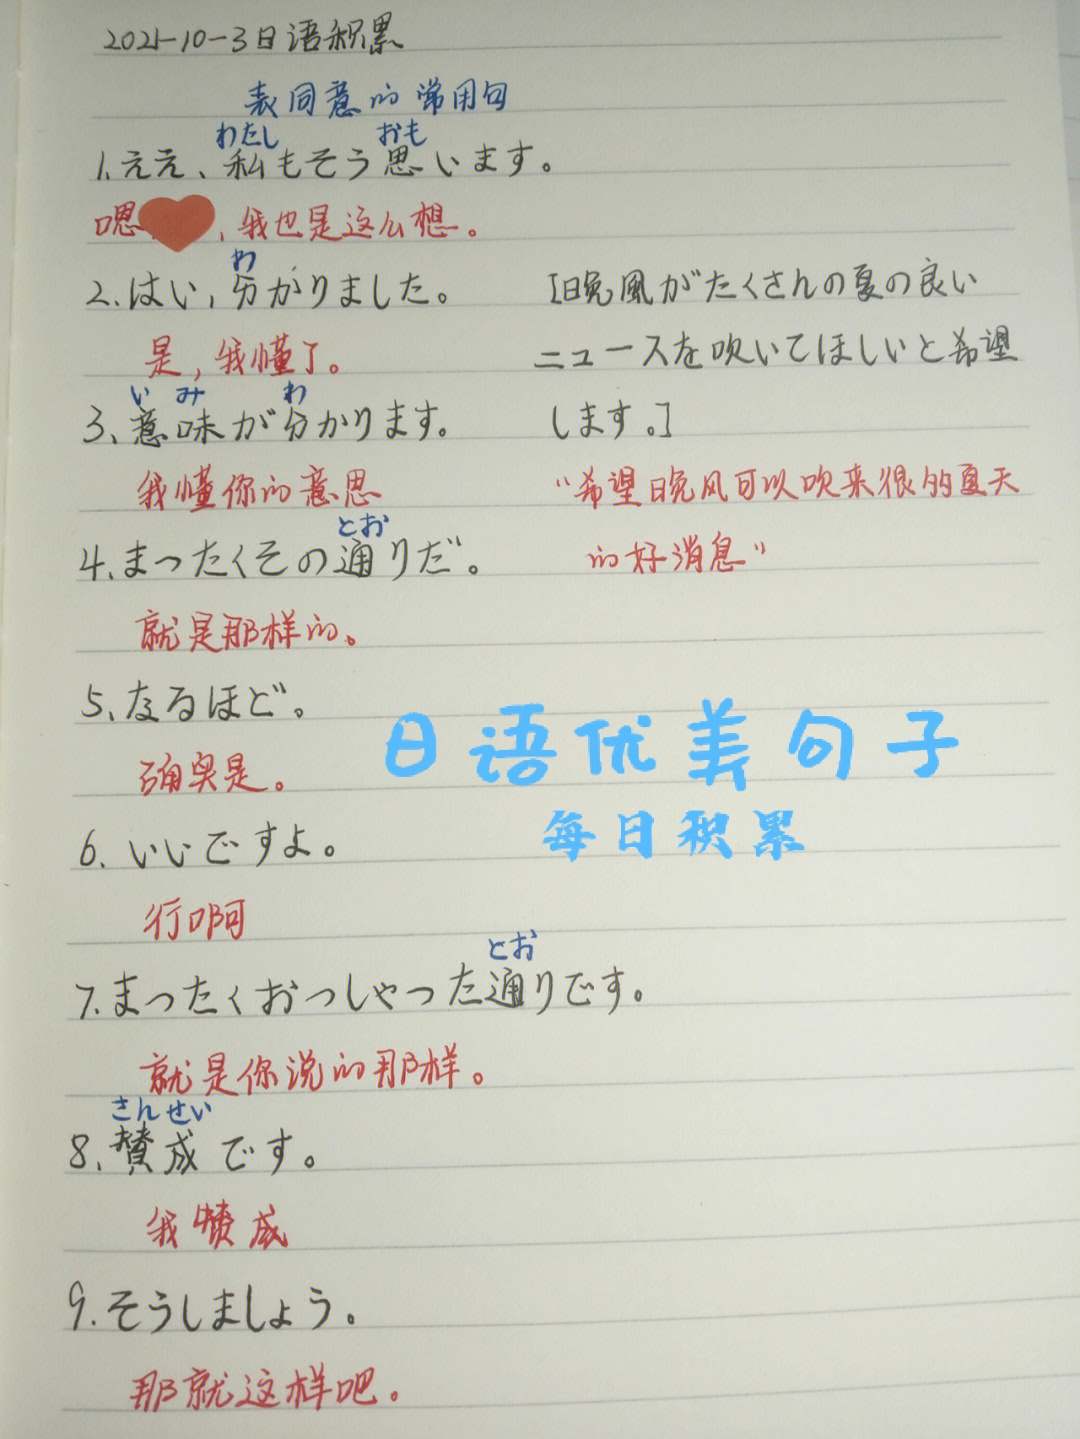 2021-10-3日语积累
表同意的常用句
わたし おも
1.ええ、私もそう思います。
嗯,我也是这么想。
わ
2.はい,分かりました。
是,我懂了。
い み わ
3、意味が分かります。
我懂你的意思
とお
4、まったくその通りだ。
就是那样的。
5、なるほど。
确实是。
6、いいですよ。
行啊
とお
7.まったくおっしゃった通りです。
就是你说的那样。
さんせい
8、賛成です。
我赞成
9.そうしましょう。
那就这样吧。
[晚風がたくさんの夏の良い
ニュースを吹いてほしいと希望
します。]
“希望晚风可以吹来很的夏天
的好消息”
日语优美句子
每日积累